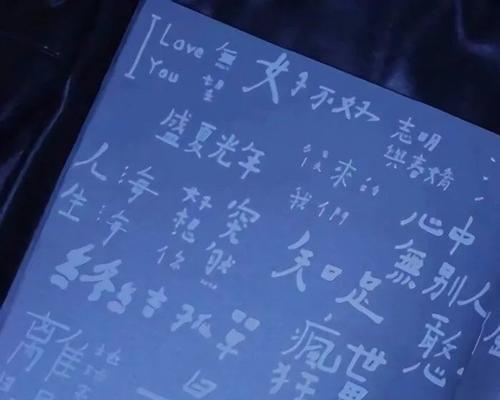 I Love 無
You 望
好不好
志明
與春嬌
盛夏光年
後來的
我們
人海
生海
突然
好想你
心中
無別人
憨
知足
終結孤單
瘋世
狂界
離